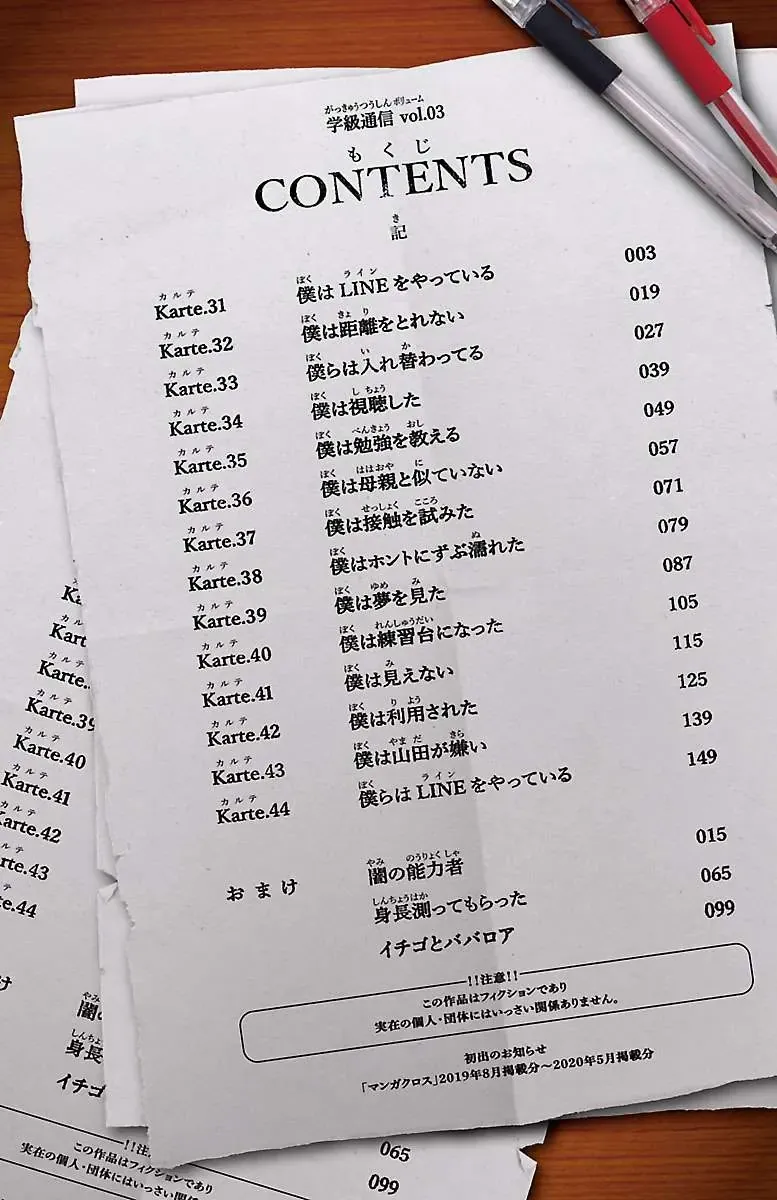 がっきゅうつうしん ボリューム
学級通信 vol.03
もくじ
CONTENTS
き
記
カルテ ぼく ライン
Karte.31 僕は LINE をやっている 003
カルテ ぼく きょり
Karte.32 僕は距離をとれない 019
カルテ ぼく い か
Karte.33 僕らは入れ替わってる 027
カルテ ぼく しちょう
Karte.34 僕は視聴した 039
カルテ ぼく べんきょう おし
Karte.35 僕は勉強を教える 049
カルテ ぼく ははおや に
Karte.36 僕は母親と似ていない 057
カルテ ぼく せっしょく こころ
Karte.37 僕は接触を試みた 071
カルテ ぼく ぬ
Karte.38 僕はホントにずぶ濡れた 079
カルテ ぼく ゆめ み
Karte.39 僕は夢を見た 087
カルテ ぼく れんしゅうだい
Karte.40 僕は練習台になった 105
カルテ ぼく み
Karte.41 僕は見えない 115
カルテ ぼく りよう
Karte.42 僕は利用された 125
カルテ ぼく やまだ きら
Karte.43 僕は山田が嫌い 139
カルテ ぼく ライン
Karte.44 僕らは LINE をやっている 149
やみ のうりょくしゃ
おまけ 闇の能力者 015
しんちょうはか
身長測ってもらった 065
イチゴとババロア 099
!!注意!!
この作品はフィクションであり
実在の個人・団体にはいっさい関係ありません。
初出のお知らせ
「マンガクロス」2019年8月掲載分~2020年5月掲載分
Ka
Kart
Karte.
カルテ
Karte.39
カルテ
Karte.40
カルテ
Karte.41
カルテ
Karte.42
rte.43
e.44
け
やみ
闇の
しんちょう
身長
イチゴと
!!注意
この作品はフィクションであり
実在の個人・団体にはいっさい関係
065
099